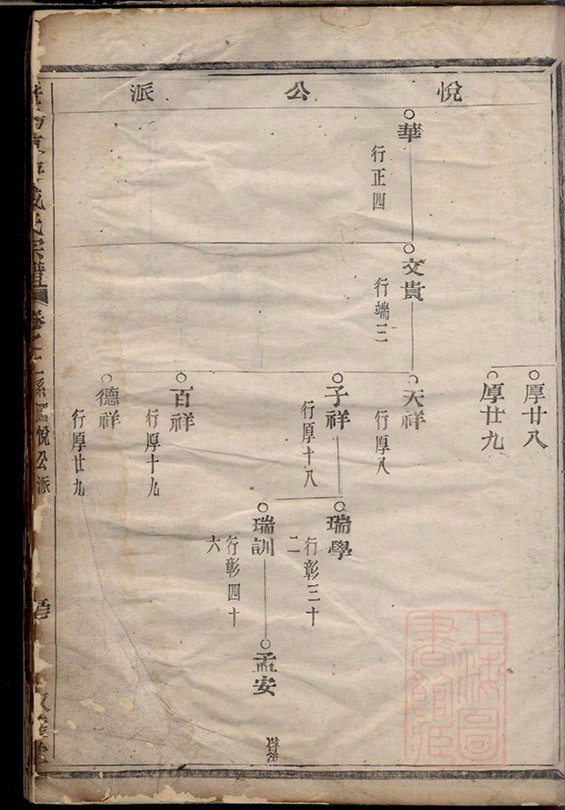 悅公派
厚廿八
厚廿九
華
行正四
文貴
行端三
天祥
行厚八
子祥
行厚十八
百祥
行厚十九
德祥
行厚廿九
瑞學
行彰三十
二
瑞訓
行彰四十
六
孟安
氏宗譜
悅公派
上海圖
書館藏